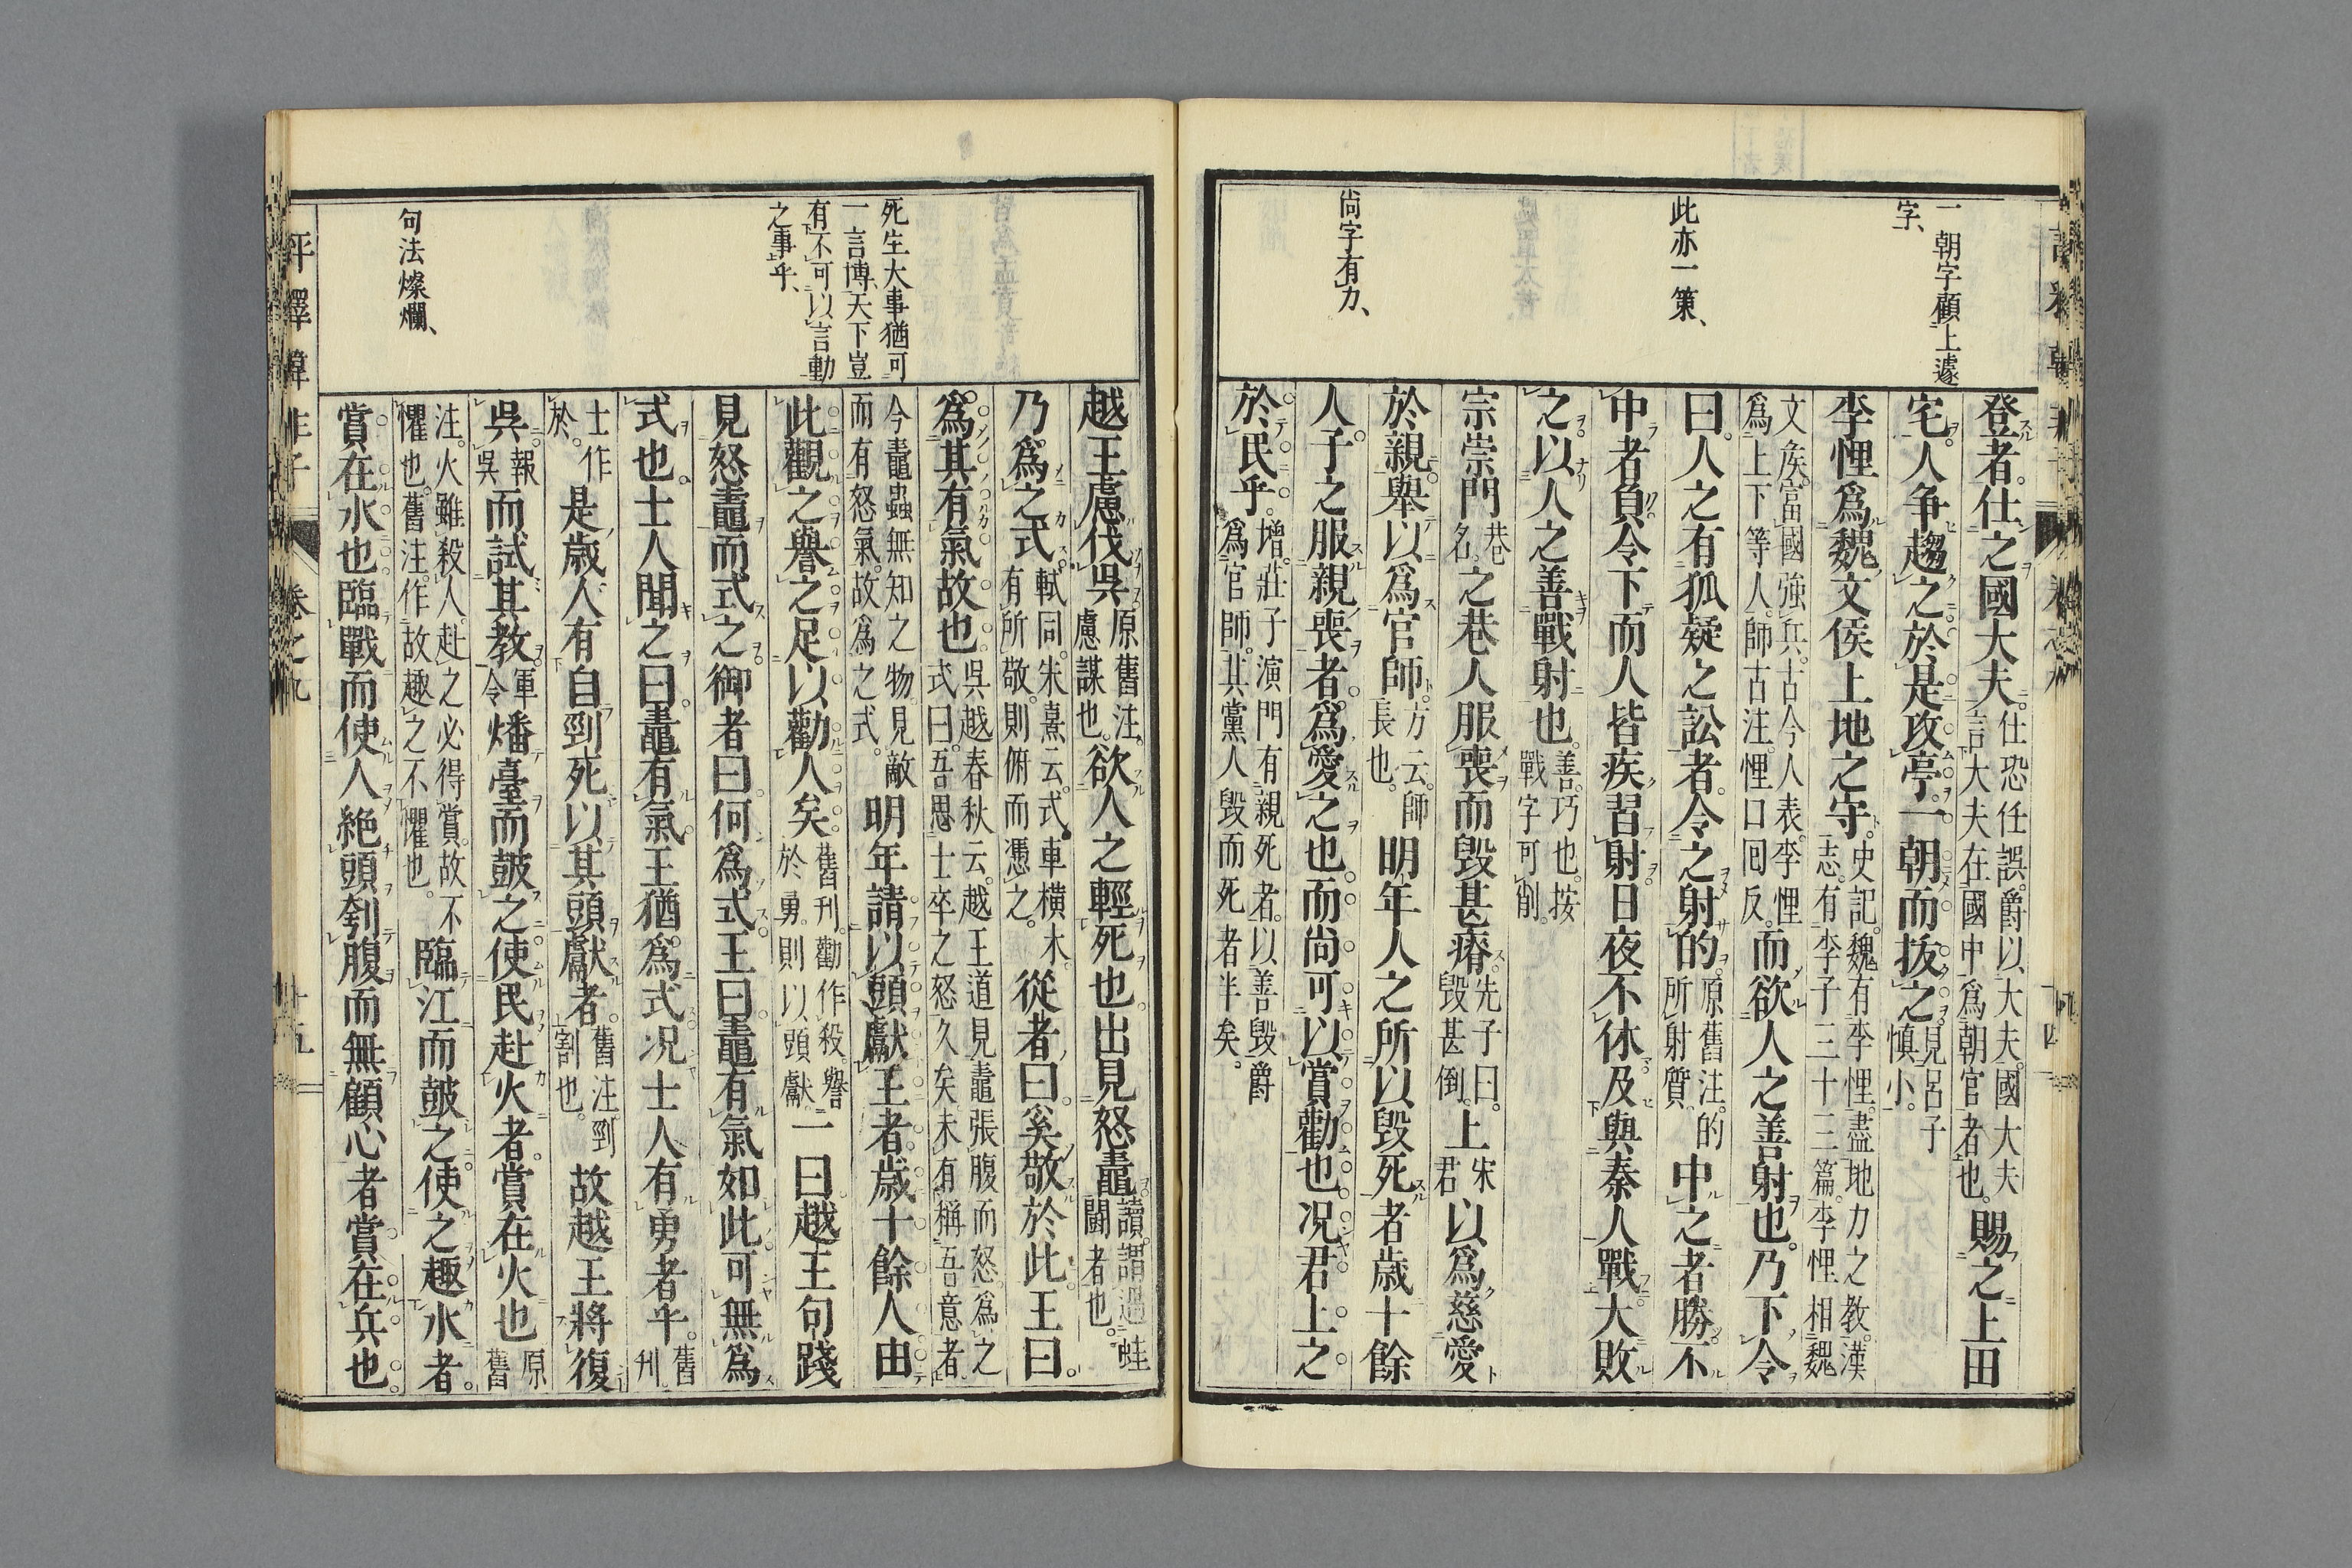 一朝字顧上遽
字、
此亦一策、
尚字有力、
登者。仕之國大夫。仕恐任誤。爵以大夫。國大夫言大夫在國中爲朝官者也。賜之上田
宅。人争趨之於是攻亭。一朝而拔之。見呂子愼小。
李悝爲魏文侯上地之守。史記。魏有李悝。盡地力之教。漢志。有李子三十三篇。李悝相魏
文侯。富國強兵。古今人表。李悝爲上下等人。師古注。悝口囘反。而欲人之善射也。乃下令
曰。人之有狐疑之訟者。令之射的。原舊注。的所射質。中之者勝。不
中者負。令下而人皆疾習射。日夜不休。及與秦人戰。大敗
之。以人之善戰射也。善。巧也。按戰字可削。
宗崇門巷名。之巷人服喪而毀甚瘠。先子曰。毀甚倒。上宋君以爲慈愛
於親。舉以爲官師。方云。師長也。明年人之所以毀死者歳十餘
人。子之服親喪者。爲愛之也。而尚可以賞勸也。况君上之
於民乎。增。莊子演門有親死者。以善毀爵爲官師。其黨人毀而死者半矣。
死生大事猶可
一言博、天下豈
有不可以言動
之事乎、
句法燦爛、
越王慮伐吳。原舊注。慮謀也。欲人之輕死也。出見怒鼃。讀。謂過蛙鬪者也。
乃爲之式。軾同。朱熹云。式。車橫木。有所敬。則俯而憑之。從者曰。奚敬於此。王曰。
爲其有氣故也。吳越春秋云。越王道見鼃張腹而怒。爲之式曰。吾思士卒之怒久矣。未有稱吾意者。
今鼃蟲無知之物。見敵而有怒氣。故爲之式。明年請以頭獻王者。歳十餘人。由
此觀之。譽之足以勸人矣。舊刊勸作殺。譽於勇。則以頭獻。一曰越王句踐
見怒鼃而式之。御者曰。何爲式。王曰。鼃有氣如此。可無爲
式也。士人聞之曰。鼃有氣。王猶爲式。况士人有勇者乎。舊刊
士作於。是歳人有自剄死以其頭獻者。舊注。剄割也。故越王將復
吳。報吳而試其教。軍令燔臺而鼓之。使民赴火者。賞在火也。原舊
注。火雖殺人。赴之必得賞。故不懼也。舊注。作故趣之不懼也。臨江而鼓之。使之趣水者。
賞在水也。臨戰而使人絶頭刳腹而無顧心者。賞在兵也。